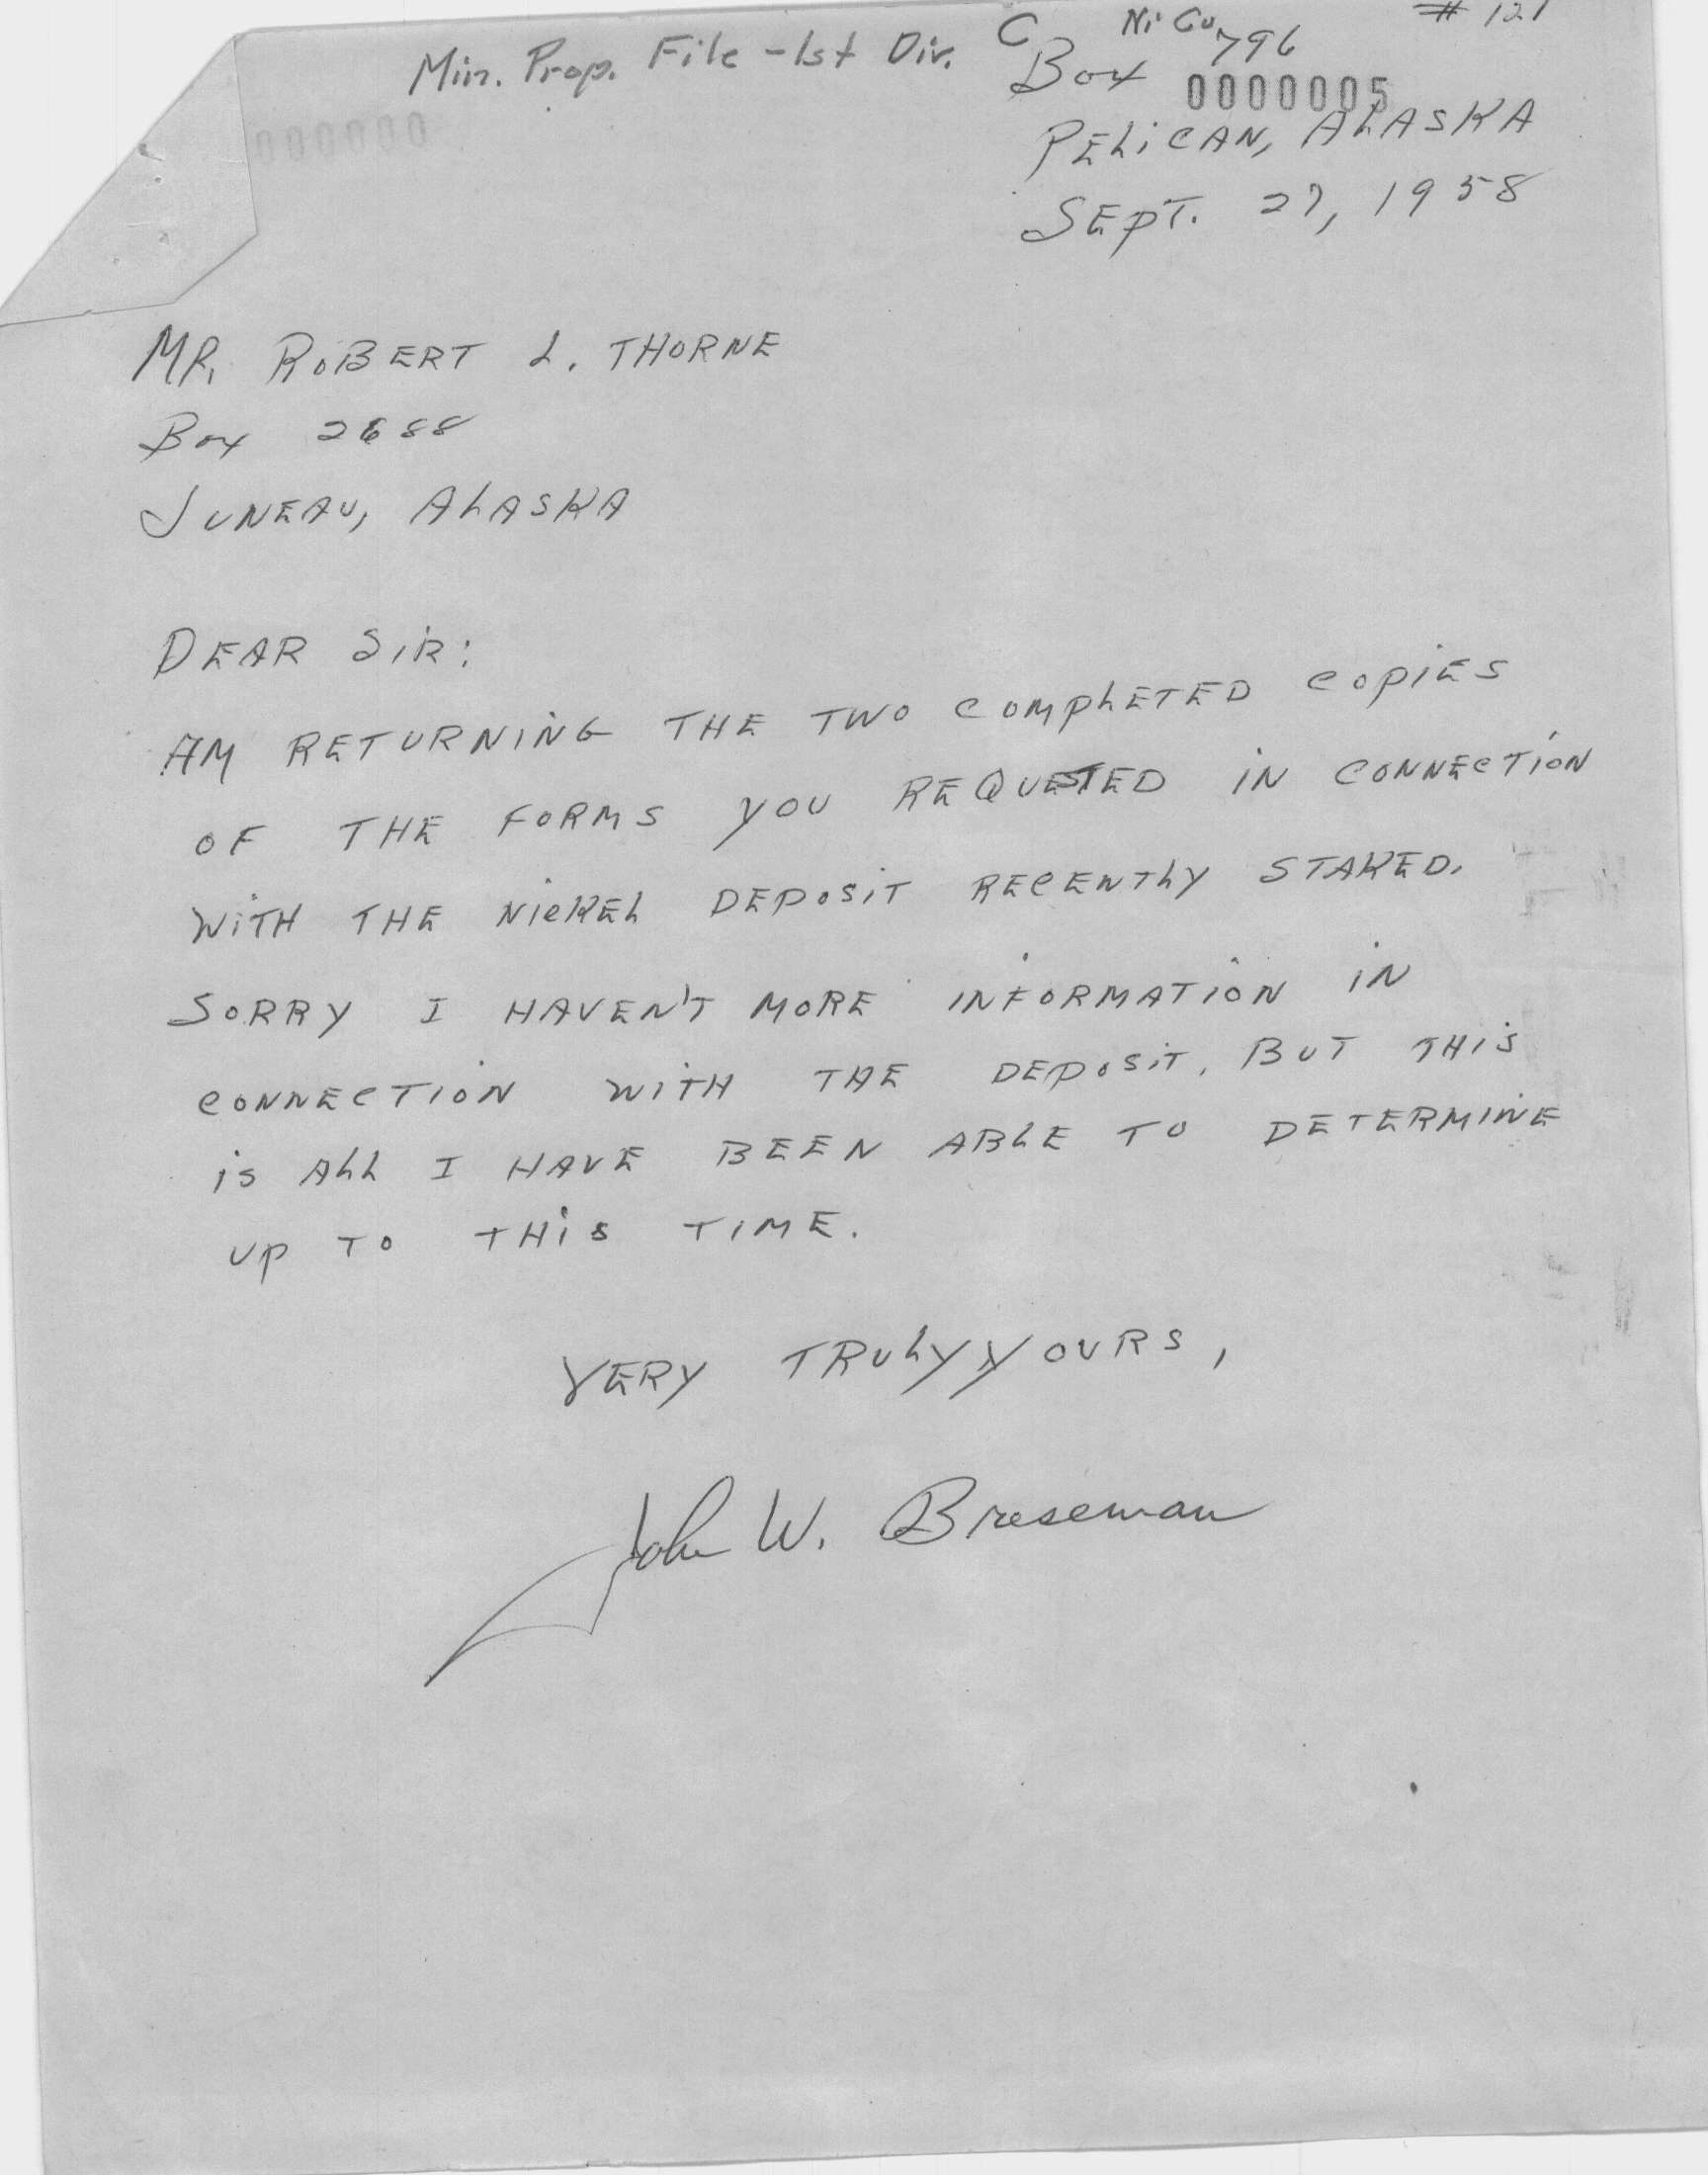 Min. Prop. File - 1st Div. C Ni Cu # 121
Box 796
0000005
000000
PELICAN, ALASKA
SEPT. 27, 1958
MR. ROBERT L. THORNE
Box 2688
JUNEAU, ALASKA
DEAR SIR:
AM RETURNING THE TWO COMPLETED COPIES
OF THE FORMS YOU REQUESTED IN CONNECTION
WITH THE NICKEL DEPOSIT RECENTLY STAKED.
SORRY I HAVEN'T MORE INFORMATION IN
CONNECTION WITH THE DEPOSIT, BUT THIS
IS ALL I HAVE BEEN ABLE TO DETERMINE
UP TO THIS TIME.
VERY TRULY YOURS,
John W. Breseman